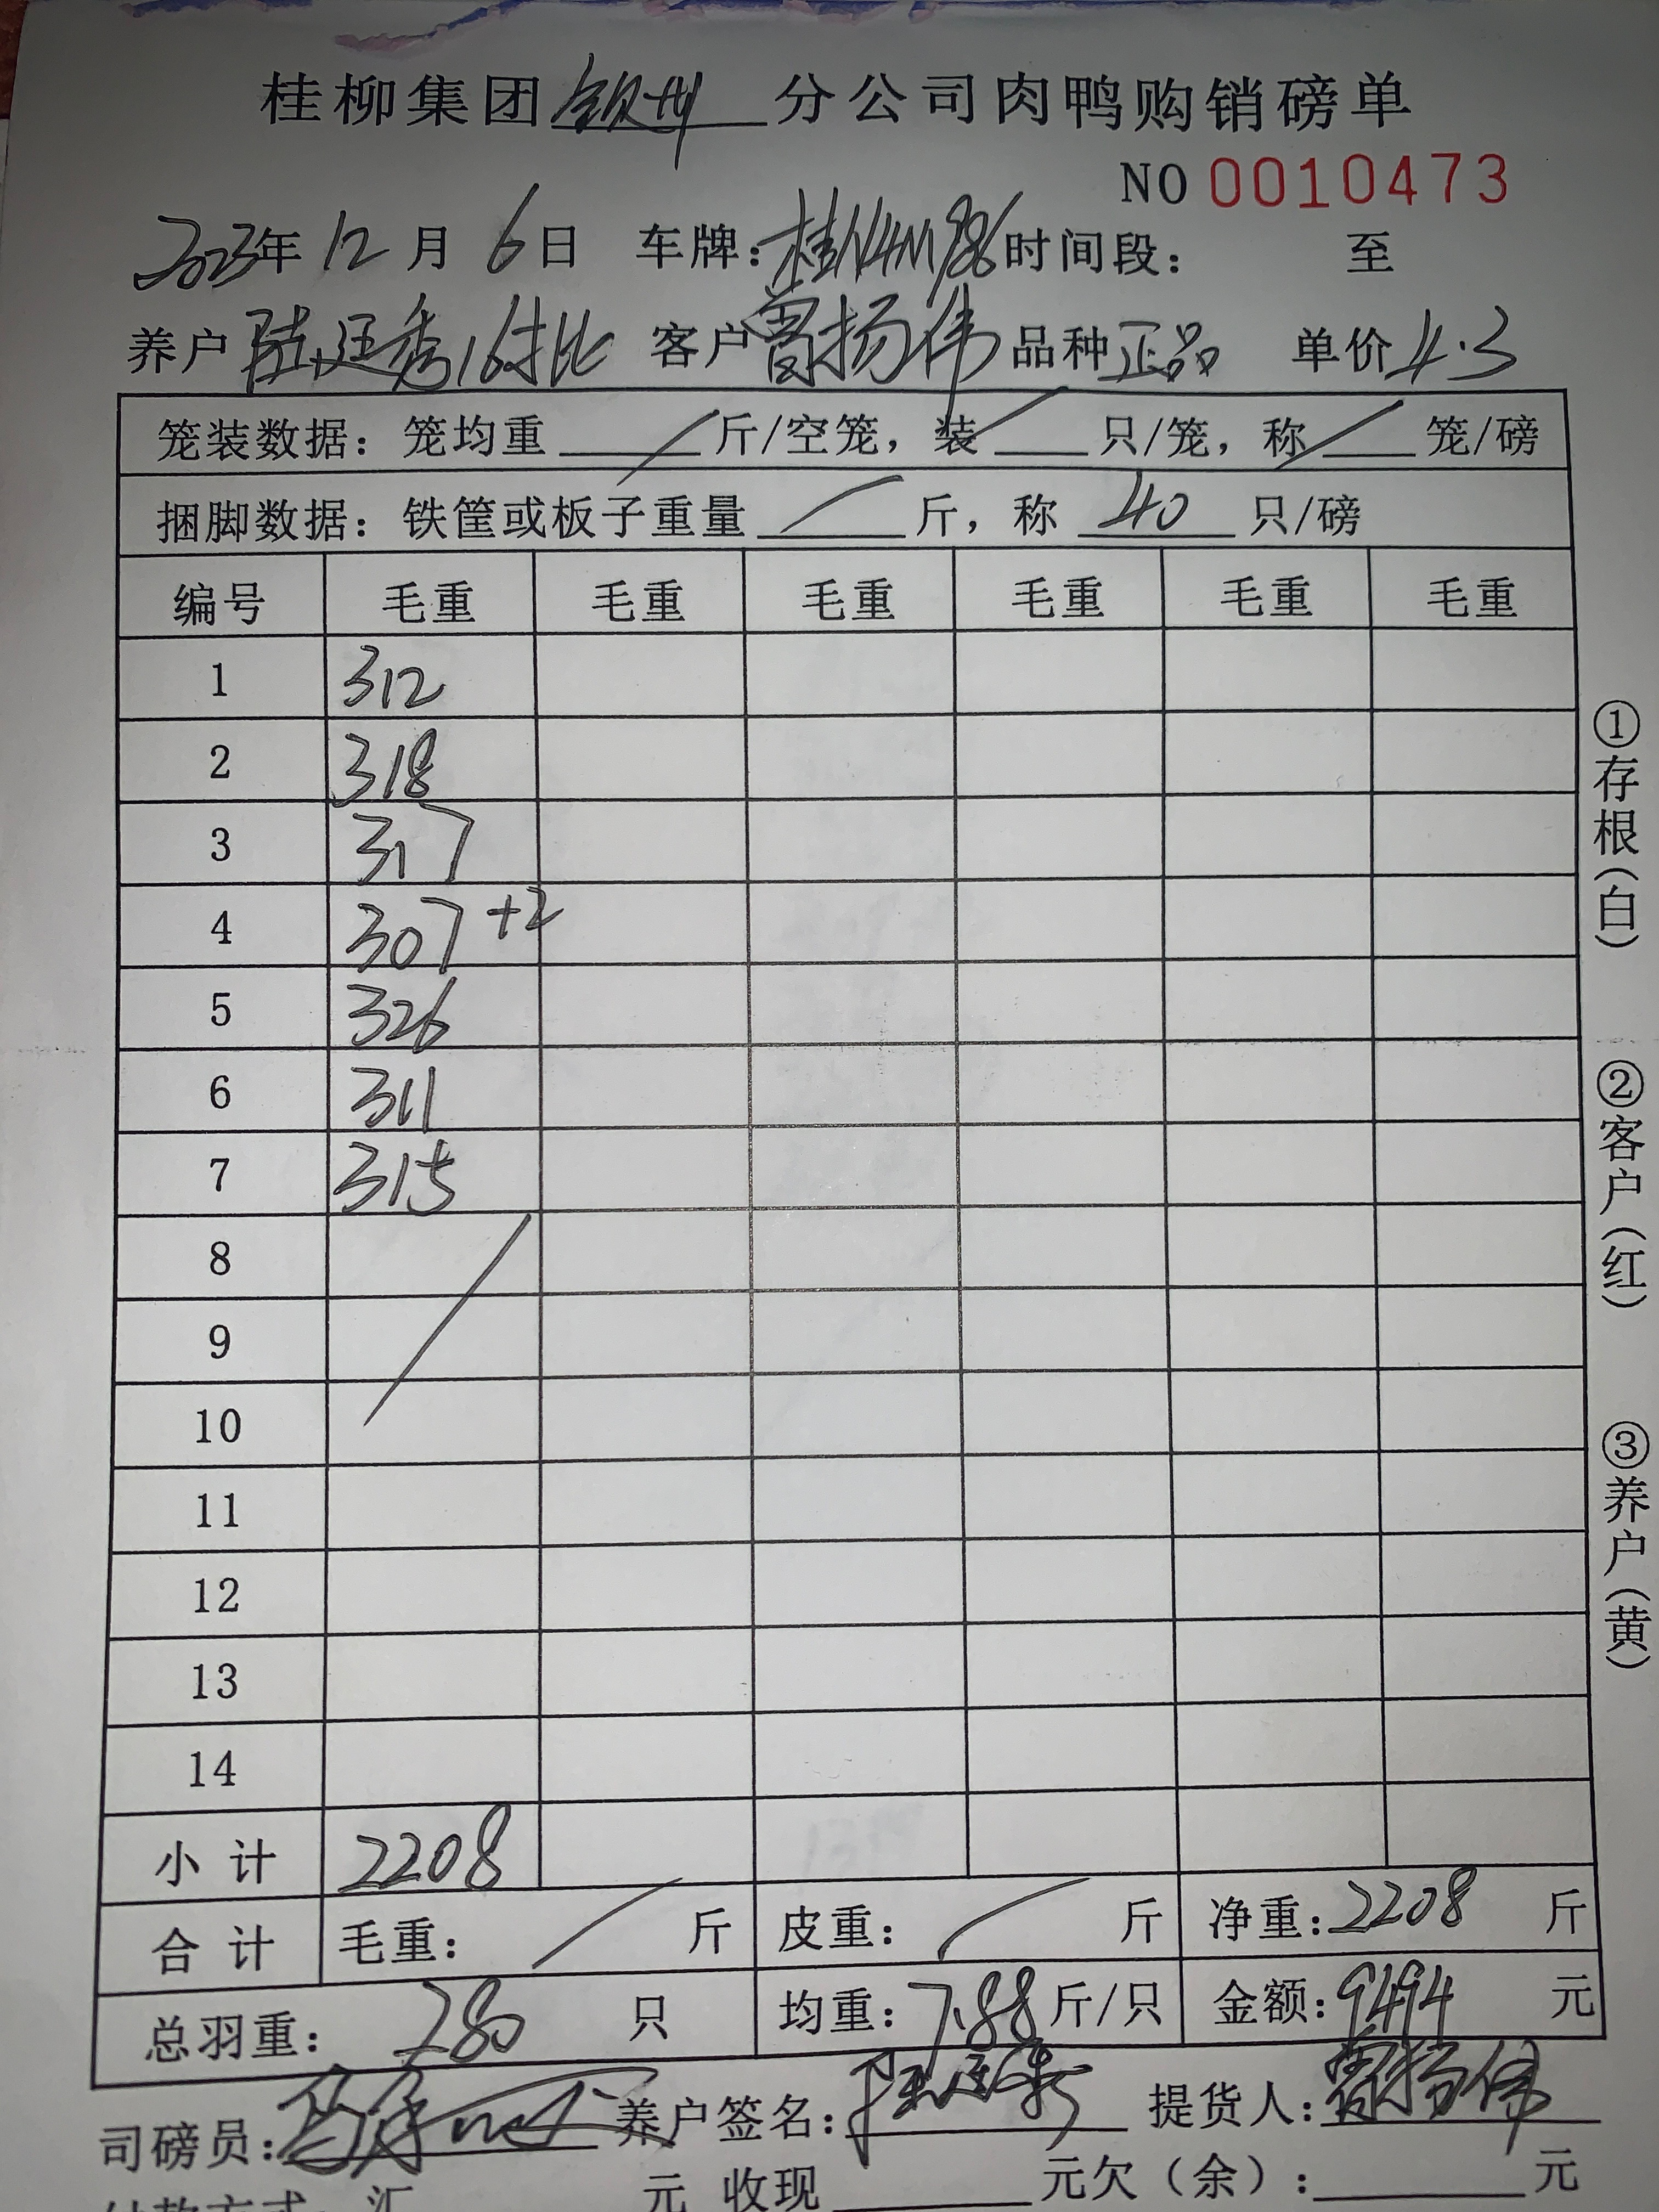 桂柳集团 钦州 分公司肉鸭购销磅单
NO 0010473
2023年 12 月 6 日 车牌: 时间段: 至
养户 陆廷秀16批 客户 曾扬伟 品种 正品 单价 4.3
笼装数据: 笼均重 / 斤/空笼, 装 / 只/笼, 称 / 笼/磅
捆脚数据: 铁筐或板子重量 / 斤, 称 40 只/磅
编号 毛重 毛重 毛重 毛重 毛重 毛重
1 312
2 318
3 317
4 307 +2
5 326
6 311
7 315
8
9
10
11
12
13
14
小计 2208
合计 毛重: / 斤 皮重: / 斤 净重: 2208 斤
总羽重: 280 只 均重: 7.88 斤/只 金额: 9494 元
司磅员: 养户签名: 陆廷秀 提货人: 曾扬伟
付款方式: 汇 元 收现 元欠(余): 元
①存根(白)
②客户(红)
③养户(黄)